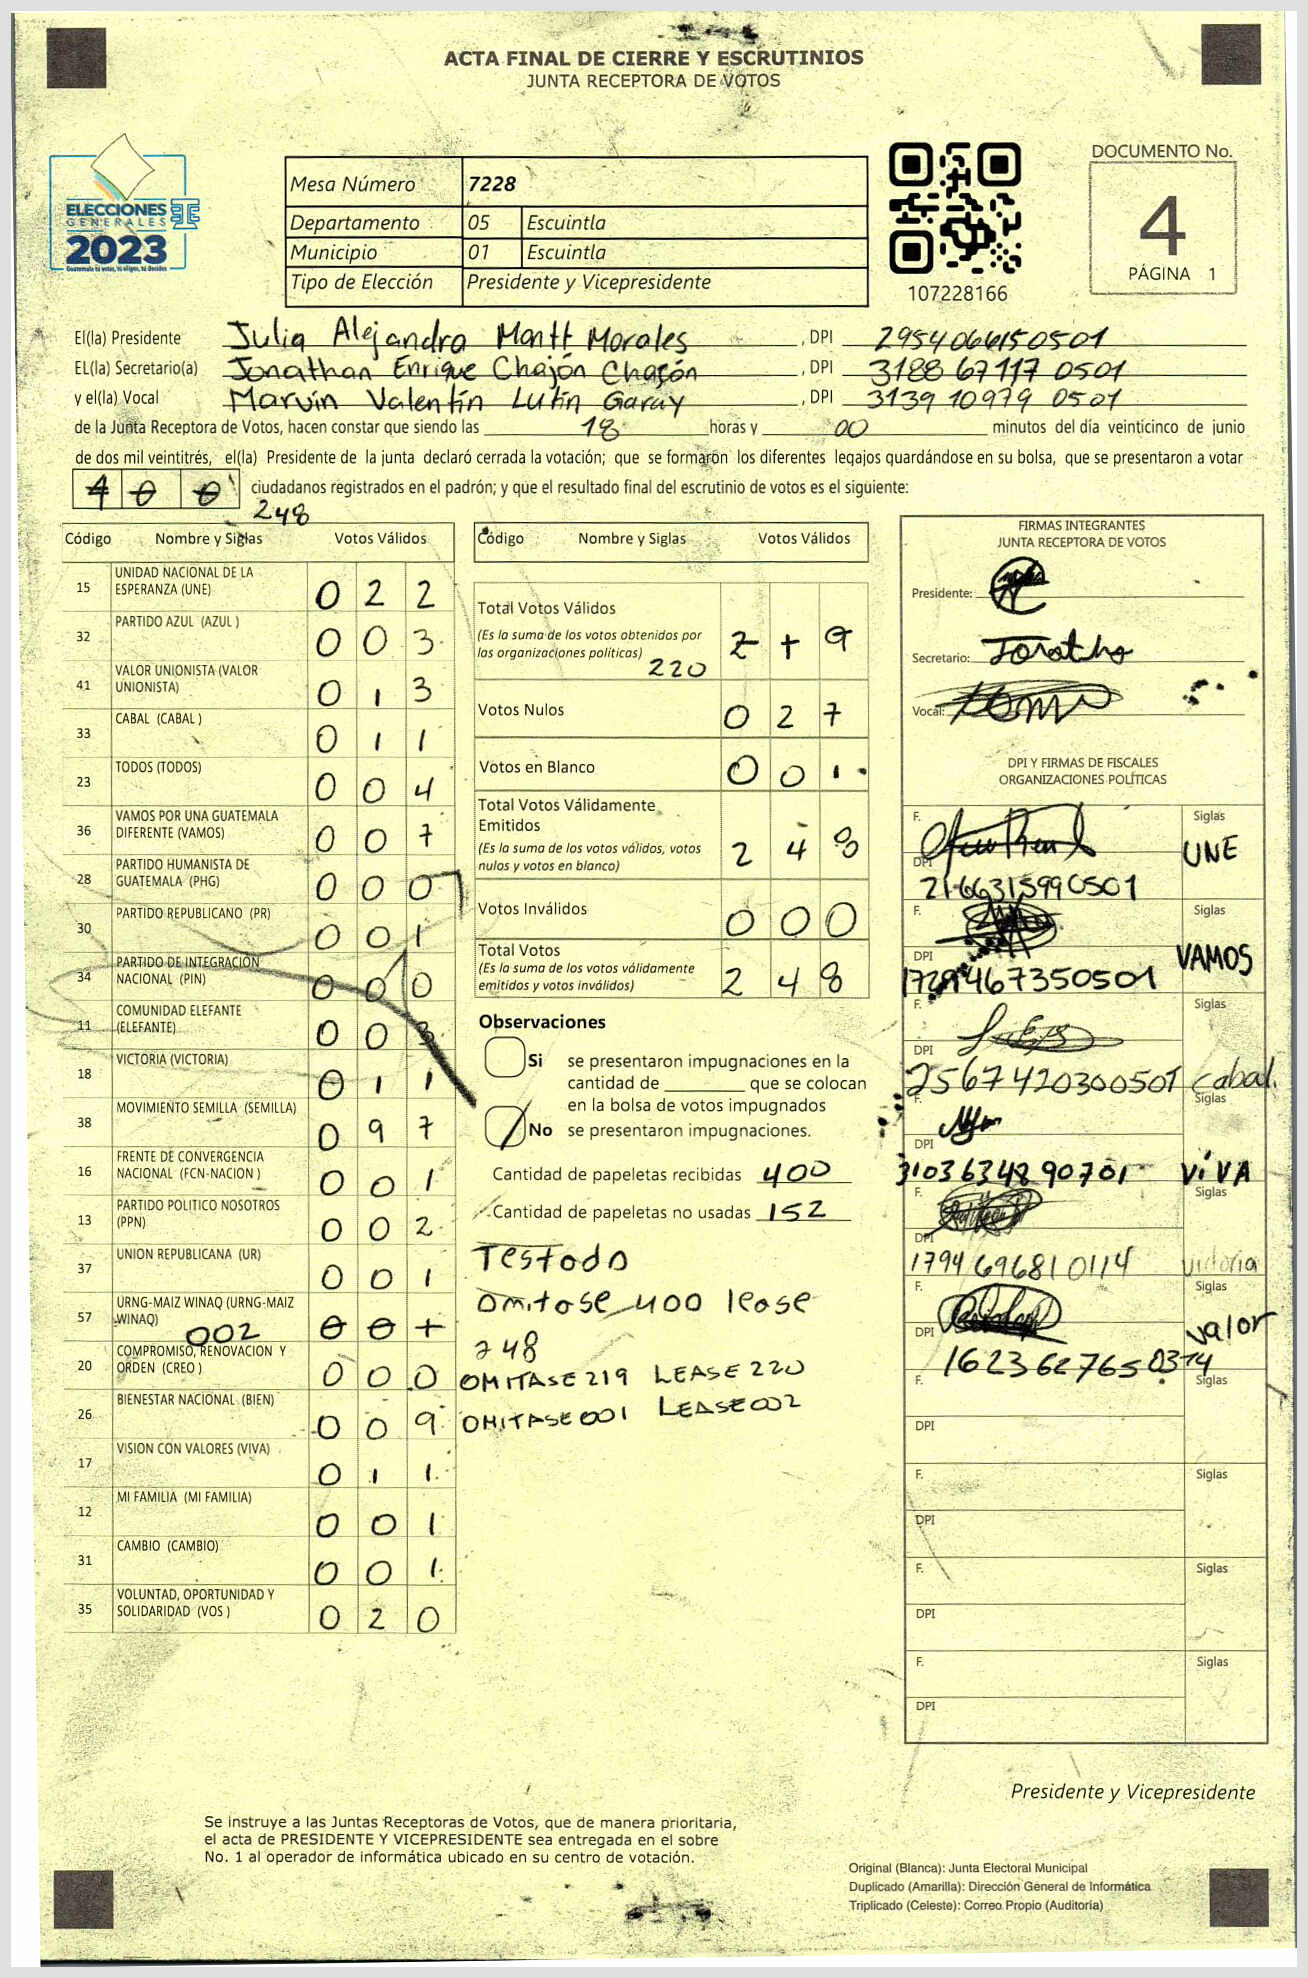 ACTA FINAL DE CIERRE Y ESCRUTINIOS
JUNTA RECEPTORA DE VOTOS
ELECCIONES
GENERALES
2023
Guatemala tú votas, tú eliges, tú decides
Mesa Número 7228
Departamento 05 Escuintla
Municipio 01 Escuintla
Tipo de Elección Presidente y Vicepresidente
107228166
DOCUMENTO No.
4
PÁGINA 1
El(la) Presidente Julia Alejandra Montt Morales , DPI 2954066150501
EL(la) Secretario(a) Jonathan Enrique Chajón Chajón , DPI 3188 67117 0501
y el(la) Vocal Marvin Valentín Lutín Garay , DPI 3139 10979 0501
de la Junta Receptora de Votos, hacen constar que siendo las 18 horas y 00 minutos del día veinticinco de junio
de dos mil veintitrés, el(la) Presidente de la junta declaró cerrada la votación; que se formarón los diferentes legajos quardándose en su bolsa, que se presentaron a votar
4 0 0 ciudadanos registrados en el padrón; y que el resultado final del escrutinio de votos es el siguiente:
248
Código Nombre y Siglas Votos Válidos
15 UNIDAD NACIONAL DE LA ESPERANZA (UNE) 0 2 2
32 PARTIDO AZUL (AZUL ) 0 0 3
41 VALOR UNIONISTA (VALOR UNIONISTA) 0 1 3
33 CABAL (CABAL ) 0 1 1
23 TODOS (TODOS) 0 0 4
36 VAMOS POR UNA GUATEMALA DIFERENTE (VAMOS) 0 0 7
28 PARTIDO HUMANISTA DE GUATEMALA (PHG) 0 0 0
30 PARTIDO REPUBLICANO (PR) 0 0 1
34 PARTIDO DE INTEGRACIÓN NACIONAL (PIN) 0 0 0
11 COMUNIDAD ELEFANTE (ELEFANTE) 0 0 3
18 VICTORIA (VICTORIA) 0 1 1
38 MOVIMIENTO SEMILLA (SEMILLA) 0 9 7
16 FRENTE DE CONVERGENCIA NACIONAL (FCN-NACION ) 0 0 1
13 PARTIDO POLITICO NOSOTROS (PPN) 0 0 2
37 UNION REPUBLICANA (UR) 0 0 1
57 URNG-MAIZ WINAQ (URNG-MAIZ WINAQ) 002 0 0 1
20 COMPROMISO, RENOVACION Y ORDEN (CREO ) 0 0 0
26 BIENESTAR NACIONAL (BIEN) 0 0 9
17 VISION CON VALORES (VIVA) 0 1 1
12 MI FAMILIA (MI FAMILIA) 0 0 1
31 CAMBIO (CAMBIO) 0 0 1
35 VOLUNTAD, OPORTUNIDAD Y SOLIDARIDAD (VOS ) 0 2 0
Código Nombre y Siglas Votos Válidos
Total Votos Válidos
(Es la suma de los votos obtenidos por
las organizaciones politicas) 2 1 9
220
Votos Nulos 0 2 7
Votos en Blanco 0 0 1
Total Votos Válidamente
Emitidos
(Es la suma de los votos válidos, votos
nulos y votos en blanco) 2 4 8
Votos Inválidos 0 0 0
Total Votos
(Es la suma de los votos válidamente
emitidos y votos inválidos) 2 4 8
Observaciones
Si se presentaron impugnaciones en la
cantidad de ________ que se colocan
en la bolsa de votos impugnados
No se presentaron impugnaciones.
Cantidad de papeletas recibidas 400
Cantidad de papeletas no usadas 152
Testodo
Omitase 400 lease
248
OMITASE 219 LEASE 220
OMITASE 001 LEASE 002
FIRMAS INTEGRANTES
JUNTA RECEPTORA DE VOTOS
Presidente:
Secretario:
Vocal:
DPI Y FIRMAS DE FISCALES
ORGANIZACIONES POLÍTICAS
F. Siglas
UNE
DPI
2166315990501
F. Siglas
VAMOS
DPI
F. Siglas
DPI
2567420300501 Cabal.
F. Siglas
DPI
3103634290701 ViVA
F. Siglas
DPI
1794696810114 victoria
F. Siglas
valor
DPI
1623627650314
F. Siglas
DPI
F. Siglas
DPI
F. Siglas
DPI
F. Siglas
DPI
Presidente y Vicepresidente
Se instruye a las Juntas Receptoras de Votos, que de manera prioritaria,
el acta de PRESIDENTE Y VICEPRESIDENTE sea entregada en el sobre
No. 1 al operador de informática ubicado en su centro de votación.
Original (Blanca): Junta Electoral Municipal
Duplicado (Amarilla): Dirección General de Informática
Triplicado (Celeste): Correo Propio (Auditoría)